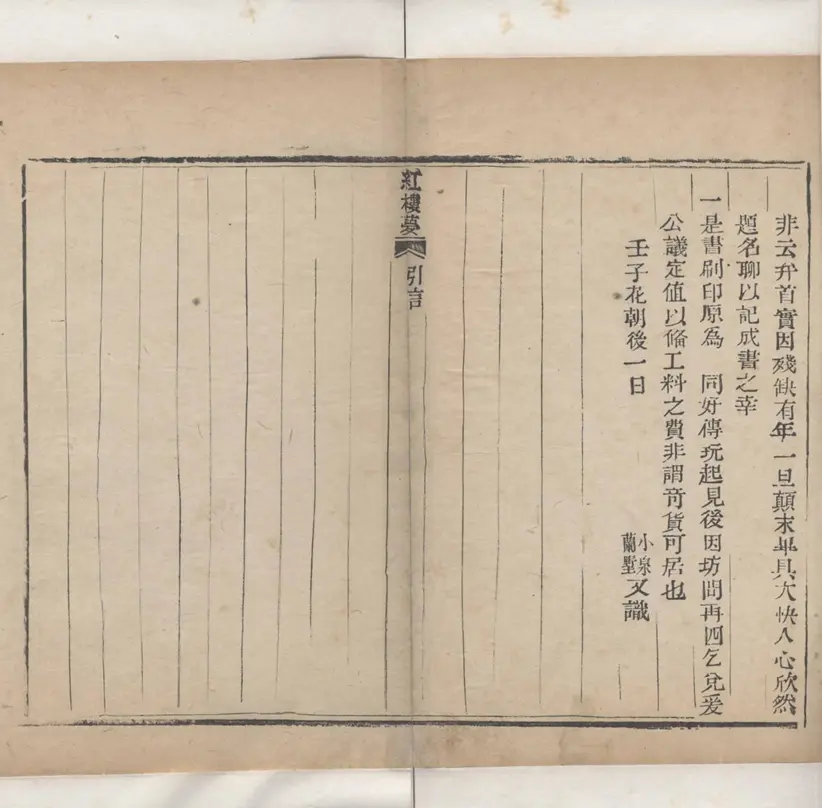 非云弁首實因殘缺有年一旦顛末畢具大快人心欣然
題名聊以記成書之幸
一是書刷印原為　同好傳玩起見後因坊間再四乞兌爰
公議定值以備工料之費非謂奇貨可居也
壬子花朝後一日
小泉
蘭墅又識
紅樓夢　引言